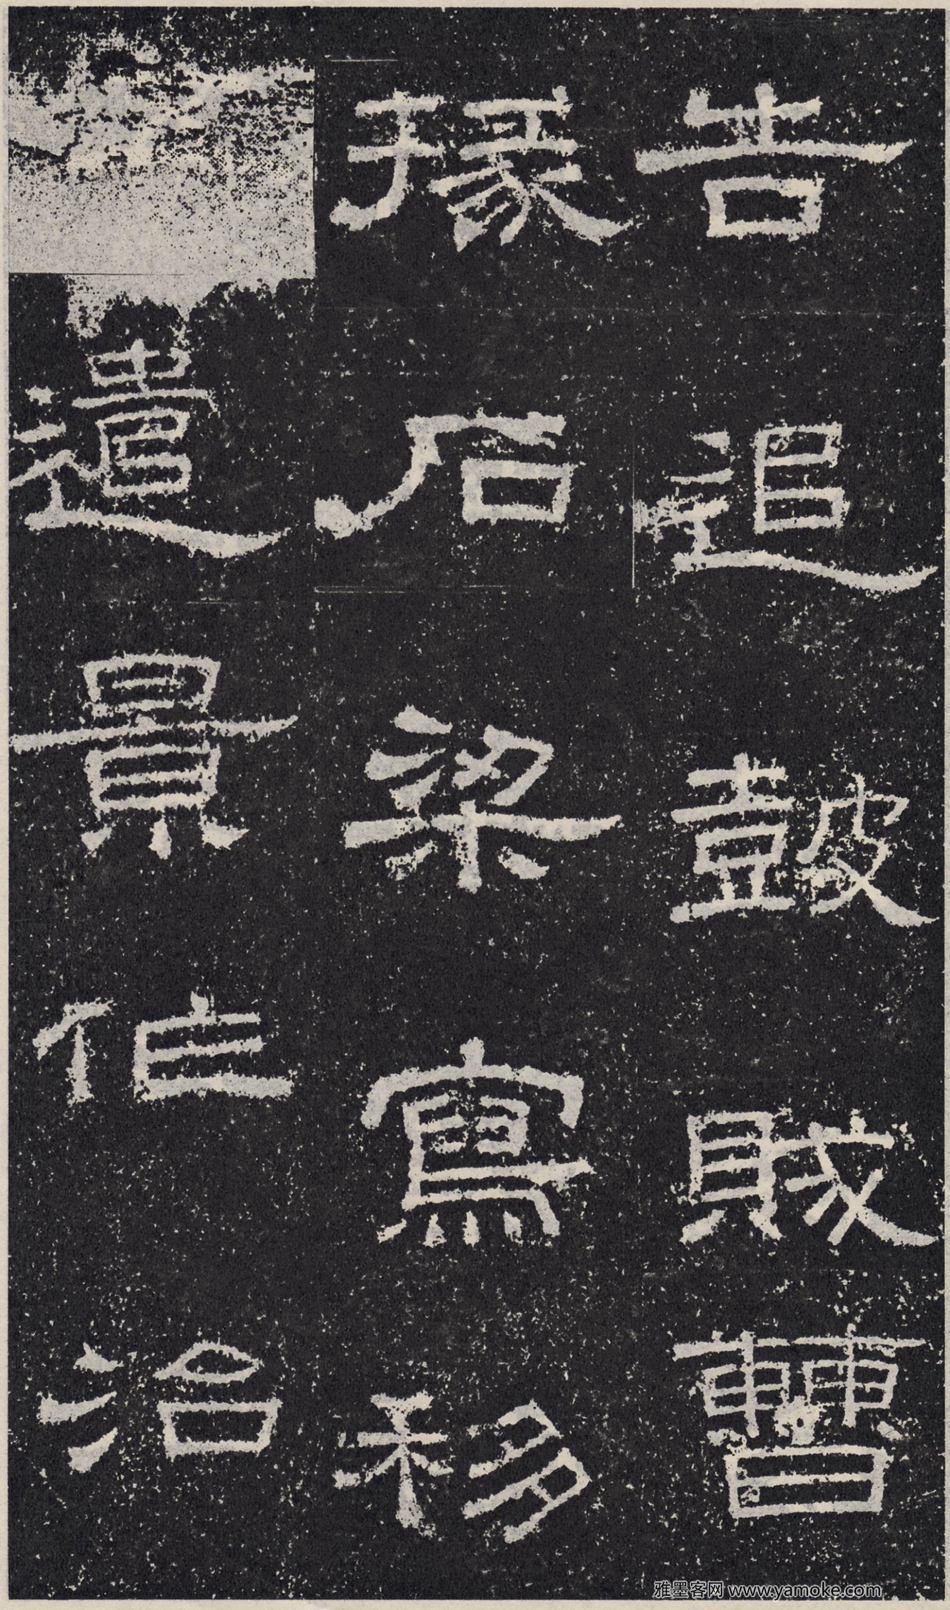 告追鼓賊曹
掾石梁寫移
遣景作治
雅墨客网 www.yamoke.com